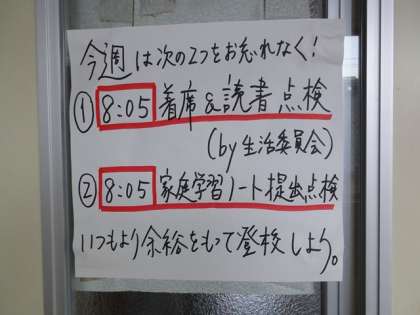 今週は次の2つをお忘れなく!
① 8:05 着席&読書点検
(by 生活委員会)
② 8:05 家庭学習ノート提出点検
いつもより余裕をもって登校しよう。